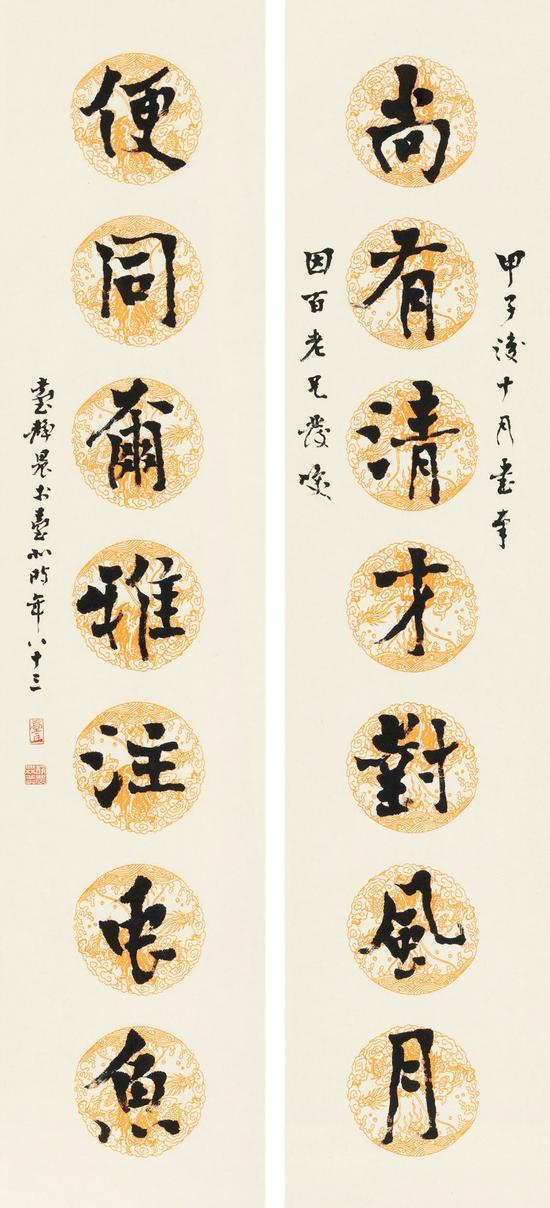 甲子後十月書奉
尚有清才對風月
因百老兄發噱
便同爾雅注虫魚
臺靜農於臺北時年八十三